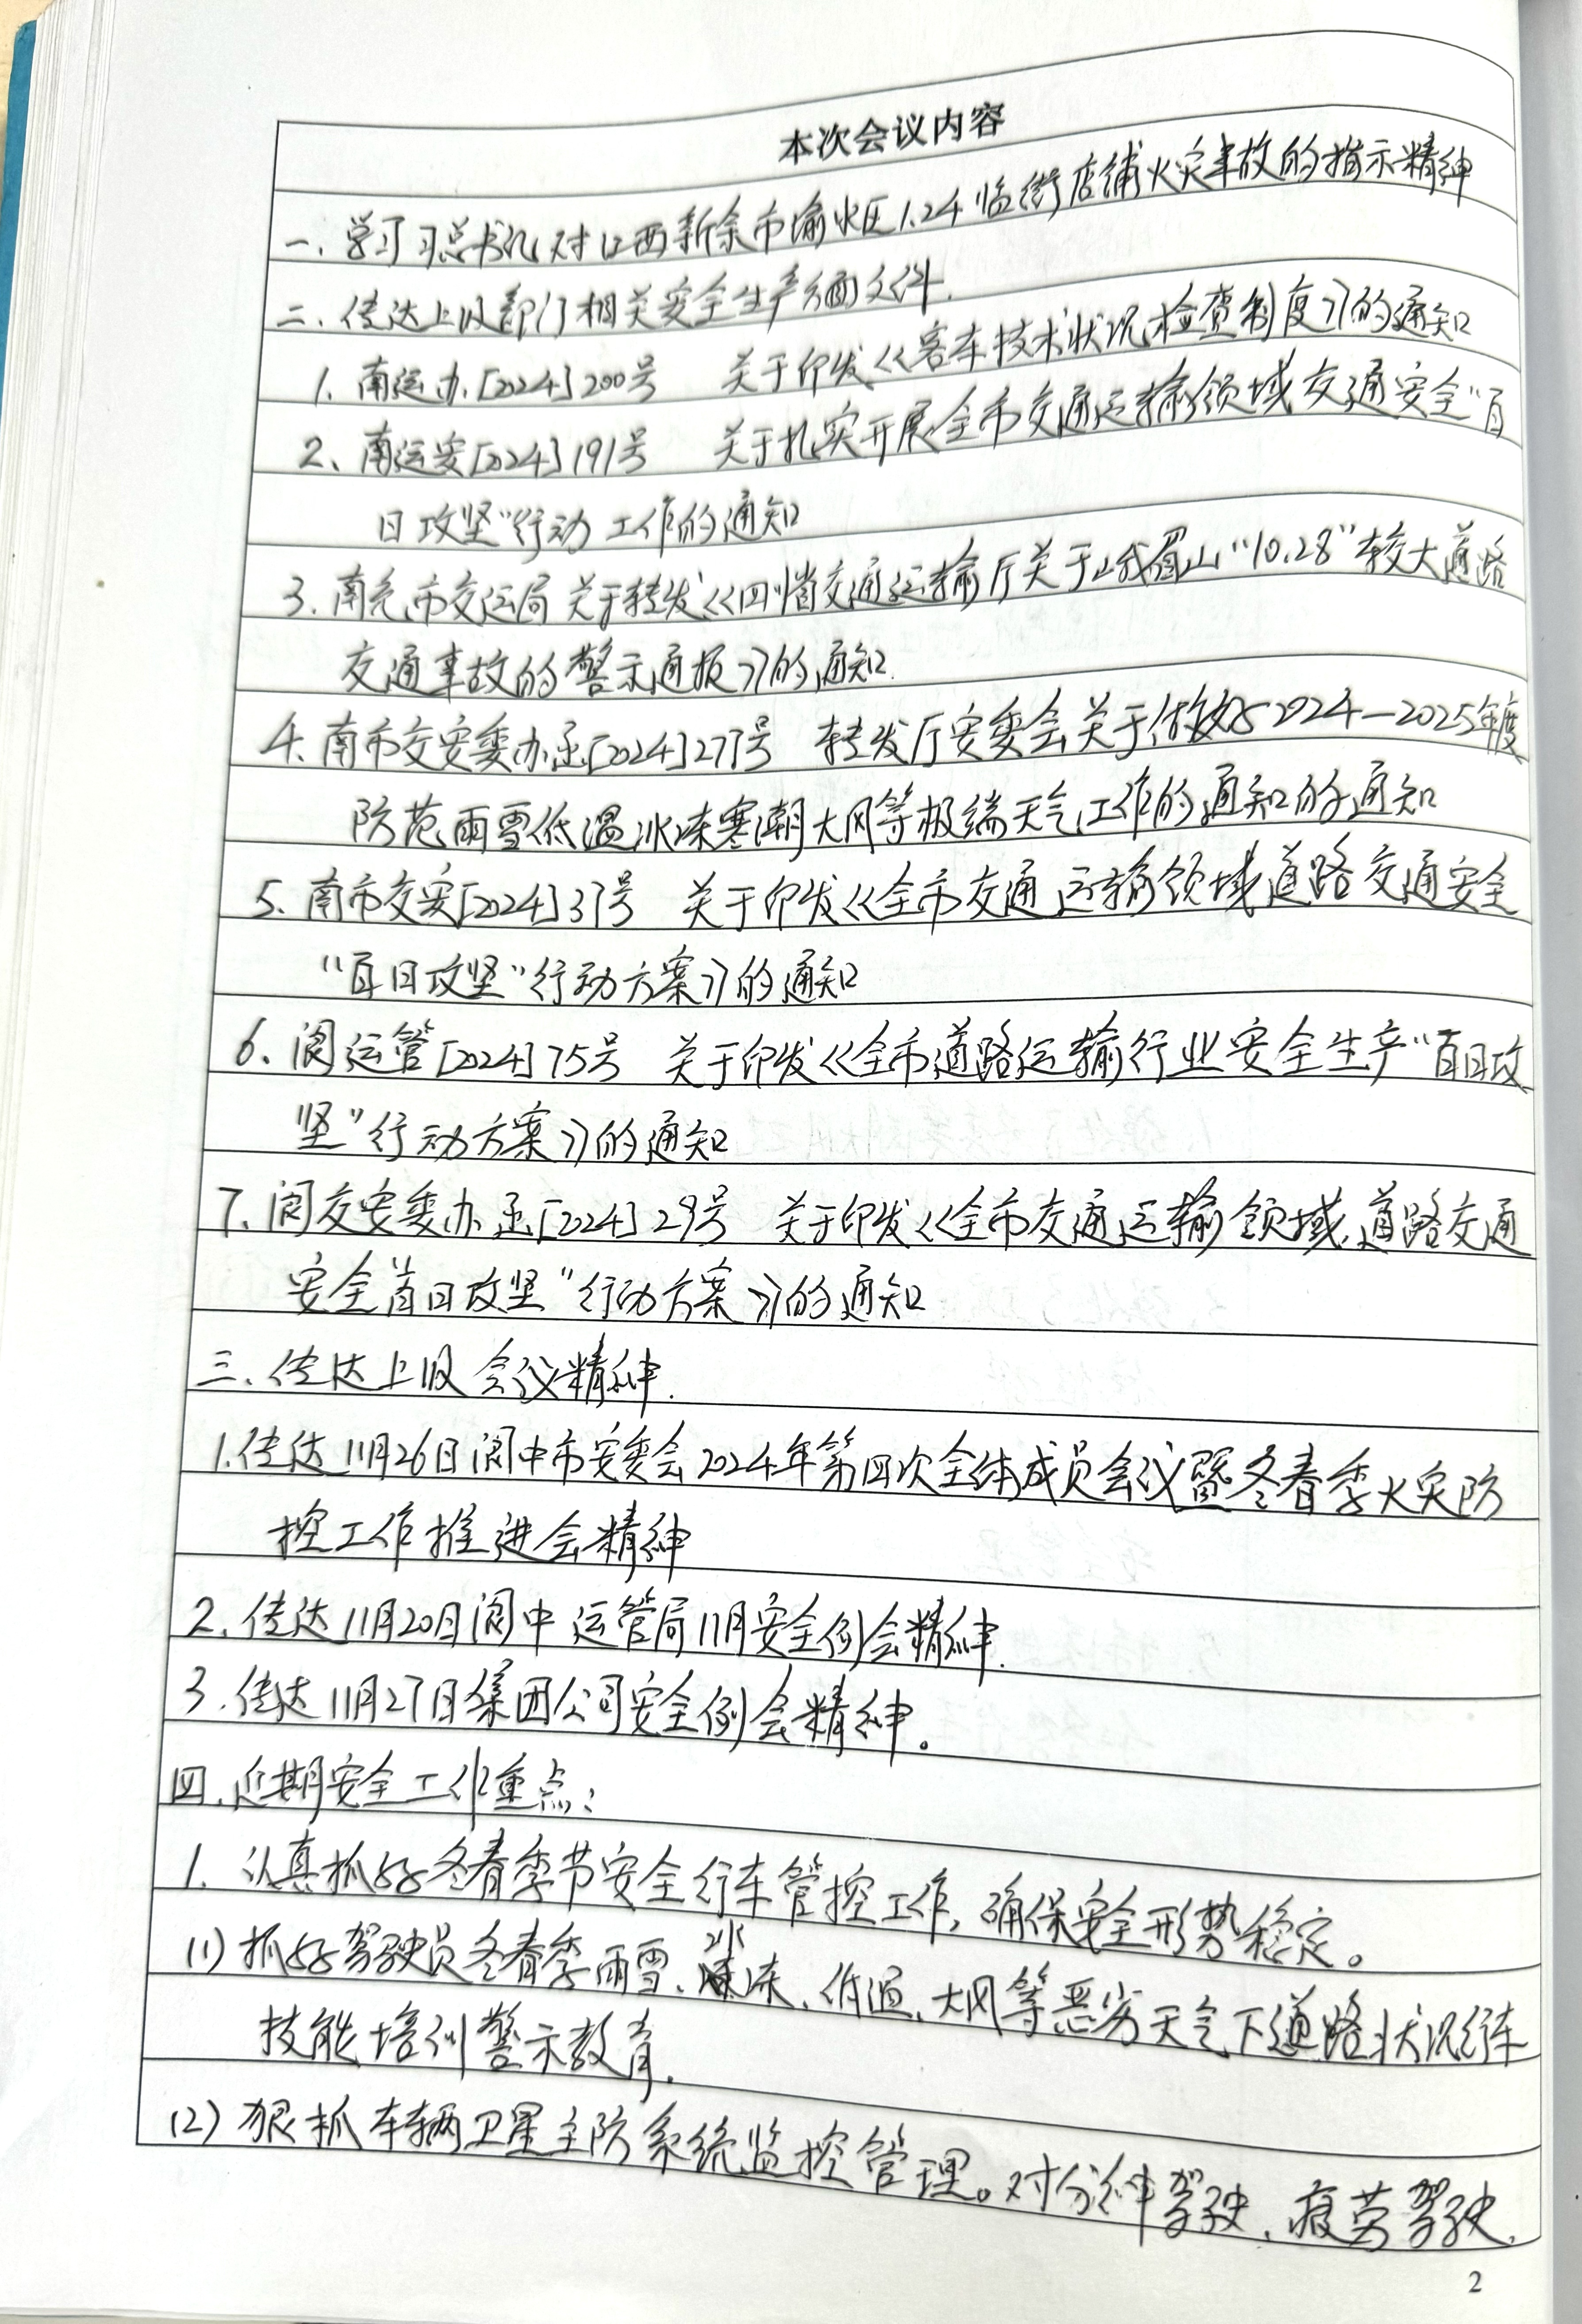 本次会议内容
一、学习习总书记对江西新余市渝水区1.24临街店铺火灾事故的指示精神
二、传达上级部门相关安全生产方面文件.
1、南运办[2024]200号 关于印发《客车技术状况检查制度》的通知
2、南运安[2024]191号 关于扎实开展全市交通运输领域交通安全"百
日攻坚"行动工作的通知
3、南充市交运局关于转发《四川省交通运输厅关于峨眉山"10.28"较大道路
交通事故的警示通报》的通知.
4、南市交安委办函[2024]277号 转发厅安委会关于做好2024—2025年度
防范雨雪低温冰冻寒潮大风等极端天气工作的通知的通知
5、南市交安[2024]37号 关于印发《全市交通运输领域道路交通安全
"百日攻坚"行动方案》的通知
6、阆运管[2024]75号 关于印发《全市道路运输行业安全生产"百日攻
坚"行动方案》的通知
7、阆交安委办函[2024]29号 关于印发《全市交通运输领域道路交通
安全"百日攻坚"行动方案》的通知
三、传达上级会议精神.
1.传达11月26日阆中市安委会2024年第四次全体成员会议暨冬春季火灾防
控工作推进会精神
2、传达11月20日阆中运管局11月安全例会精神.
3.传达11月27日集团公司安全例会精神。
四.近期安全工作重点:
1、认真抓好冬春季节安全行车管控工作,确保安全形势稳定。
(1)抓好驾驶员冬春季雨雪、冰冻、低温、大风等恶劣天气下道路状况行车
技能培训警示教育.
(2)狠抓车辆卫星主防系统监控管理。对分神驾驶、疲劳驾驶、
2